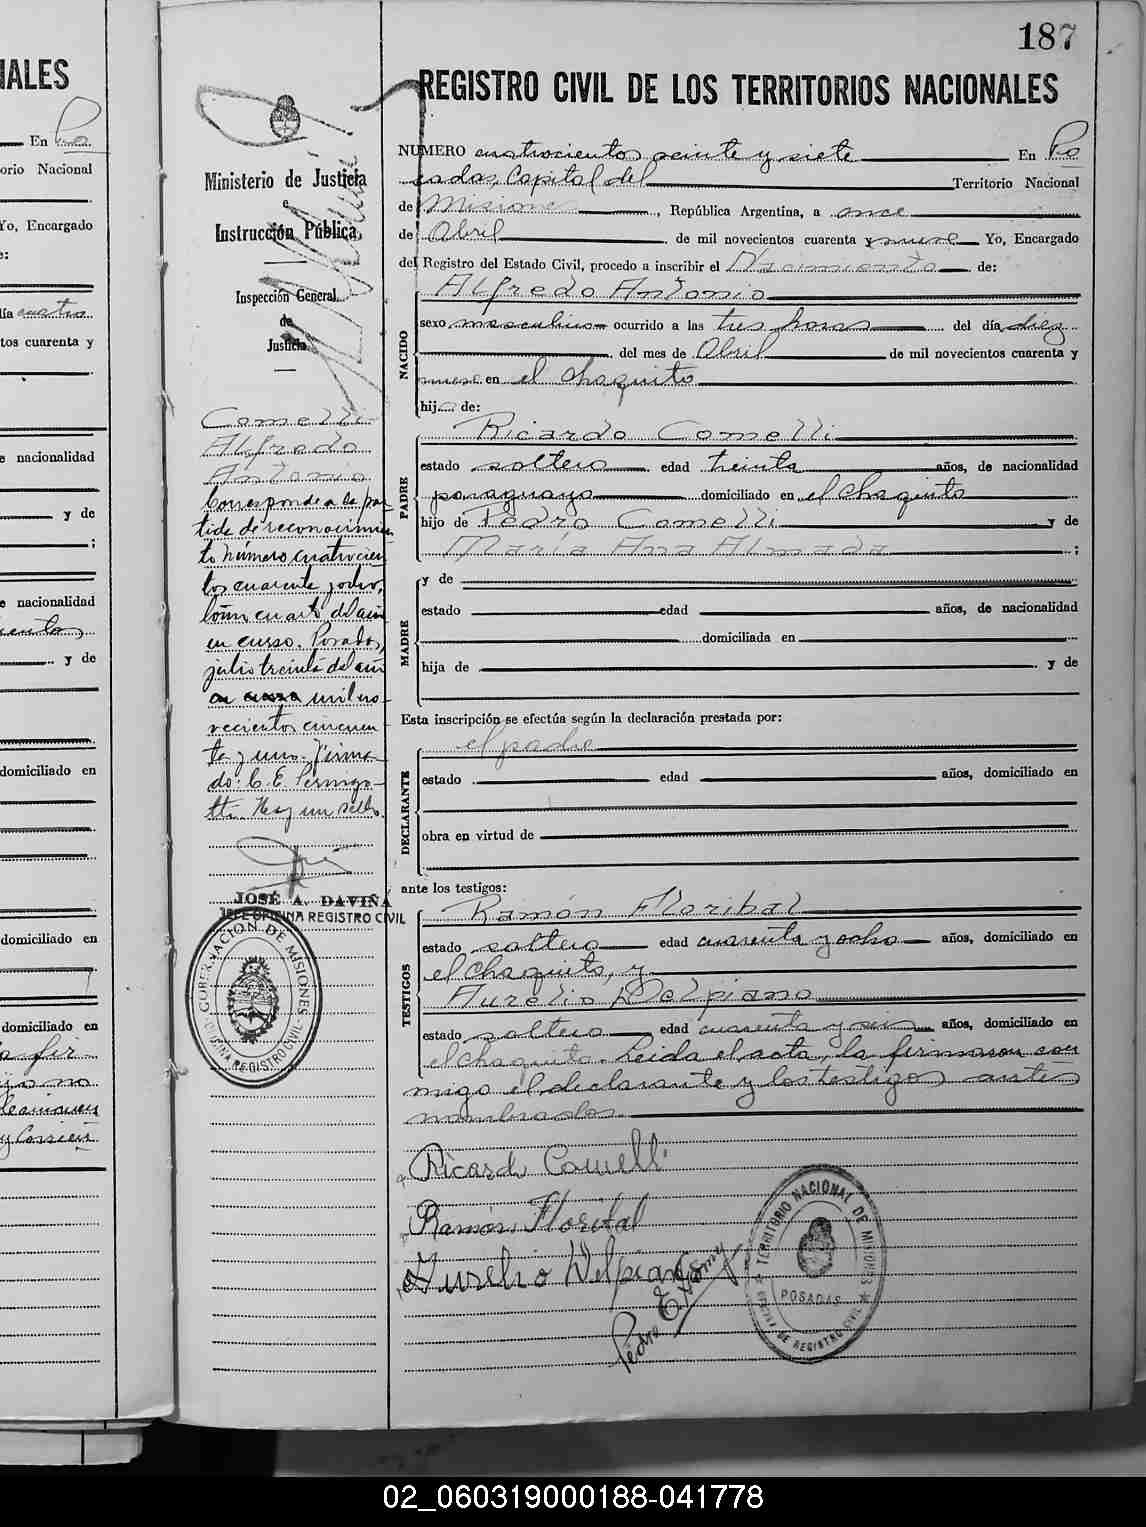 IALES
En Po
orio Nacional
Yo, Encargado
e:
ía cuatro
tos cuarenta y
e nacionalidad
y de
;
e nacionalidad
y de
domiciliado en
domiciliado en
domiciliado en
187
REGISTRO CIVIL DE LOS TERRITORIOS NACIONALES
Ministerio de Justicia
e
Instrucción Pública
Inspección General
de
Justicia
NUMERO cuatrocientos veinte y siete En Po
sadas, Capital del Territorio Nacional
de Misiones, República Argentina, a once
de Abril de mil novecientos cuarenta y nueve Yo, Encargado
del Registro del Estado Civil, procedo a inscribir el Nacimiento de:
NACIDO
Alfredo Antonio
sexo masculino ocurrido a las tres horas del día diez
del mes de Abril de mil novecientos cuarenta y
nueve en el Chaquito
hij de:
PADRE
Ricardo Comelli
estado soltero edad treinta años, de nacionalidad
paraguaya domiciliado en el Chaquito
hijo de Pedro Comelli y de
María Ana Almada ;
MADRE
y de
estado edad años, de nacionalidad
domiciliada en
hija de y de
Esta inscripción se efectúa según la declaración prestada por:
DECLARANTE
el padre
estado edad años, domiciliado en
obra en virtud de
ante los testigos:
TESTIGOS
Ramón Floribal
estado soltero edad cuarenta y ocho años, domiciliado en
el Chaquito, y
Aurelio Delpiano
estado soltero edad cuarenta y seis años, domiciliado en
el Chaquito. Leida el acta, la firmaron con
migo el declarante y los testigos antes
nombrados.
Ricardo Comelli
Ramón Floribal
Aurelio Delpiano
Pedro E.
TERRITORIO NACIONAL DE MISIONES
POSADAS
OFICINA DE REGISTRO CIVIL
Comelli
Alfredo
Antonio
Corresponde a la par
tida de reconocimien
to número cuatrocien
tos cuarenta y ocho,
tomo cuarto del año
en curso. Posadas,
julio treinta del año
mil no
vecientos cincuen
ta y uno. Firma
do: C. E. Pernigo
tti. Hay un sello.
JOSÉ A. DAVIÑA
JEFE OFICINA REGISTRO CIVIL
GOBERNACION DE MISIONES
OFICINA REGISTRO CIVIL
02_060319000188-041778